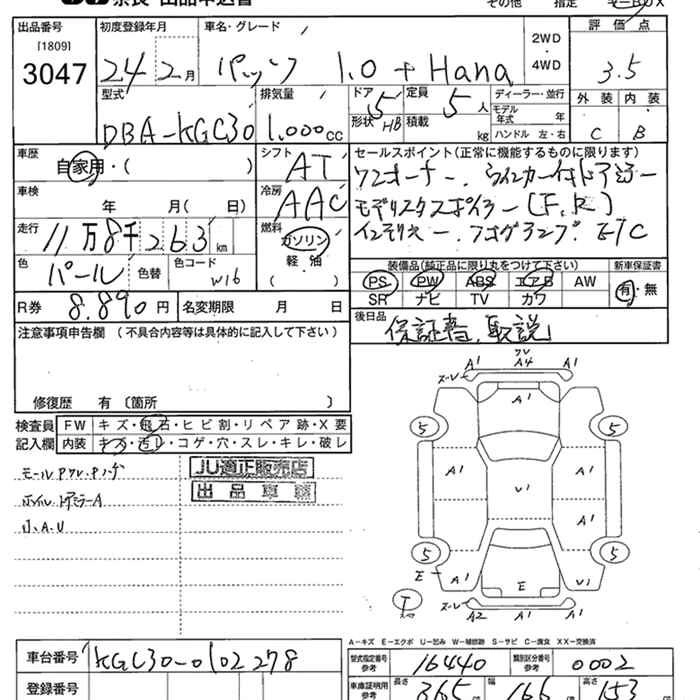 奈良 出品申込書
その他 指定
出品番号 初度登録年月 車名・グレード 2WD ・ 4WD 評価点
[1809]
3047 24 2月 パッソ 1.0 + Hana 3.5
型式 排気量 ドア 5 定員 5人 ディーラー・並行 外装 内装
DBA-KGC30 1,000cc 形状 HB 積載 kg モデル年式 年 C B
ハンドル 左・右
車歴 シフト セールスポイント(正常に機能するものに限ります)
自家用・( ) AT ワンオーナー
車検 冷房 モデリスタスポイラー (F,R)
年 月( 日) AAC フォグランプ ETC
走行 燃料
11万8千263km ガソリン
軽・油
( )
色 色替 色コード
パール W16
装備品(純正品に限り丸をつけて下さい) 新車保証書
PS PW ABS エアB AW 有・無
SR ナビ TV カワ
R券 8,890円 名変期限 月 日
後日品 保証書、取説
注意事項申告欄 (不具合内容等は具体的に記入して下さい)
修復歴 有(箇所 )
検査員 FW キズ・飛石・ヒビ割・リペア跡・X要
記入欄 内装 キズ・汚レ・コゲ・穴・スレ・キレ・破レ
JU適正販売店
出品車輌
ホイル ドアミラーA
小、A、U
A1 A4 A1
A1
5 5
A1 U1 A1
A1
5 5
E A1 E U1
T
A2 A1 A1
A-キズ E-エクボ U-凹み W-補修跡 S-サビ C-腐食 XX-交換済
車台番号 KGC30-0102278
型式指定番号 参考 16440 類別区分番号 参考 0002
登録番号
車庫証明用 参考 長さ 365 幅 166 高さ 153